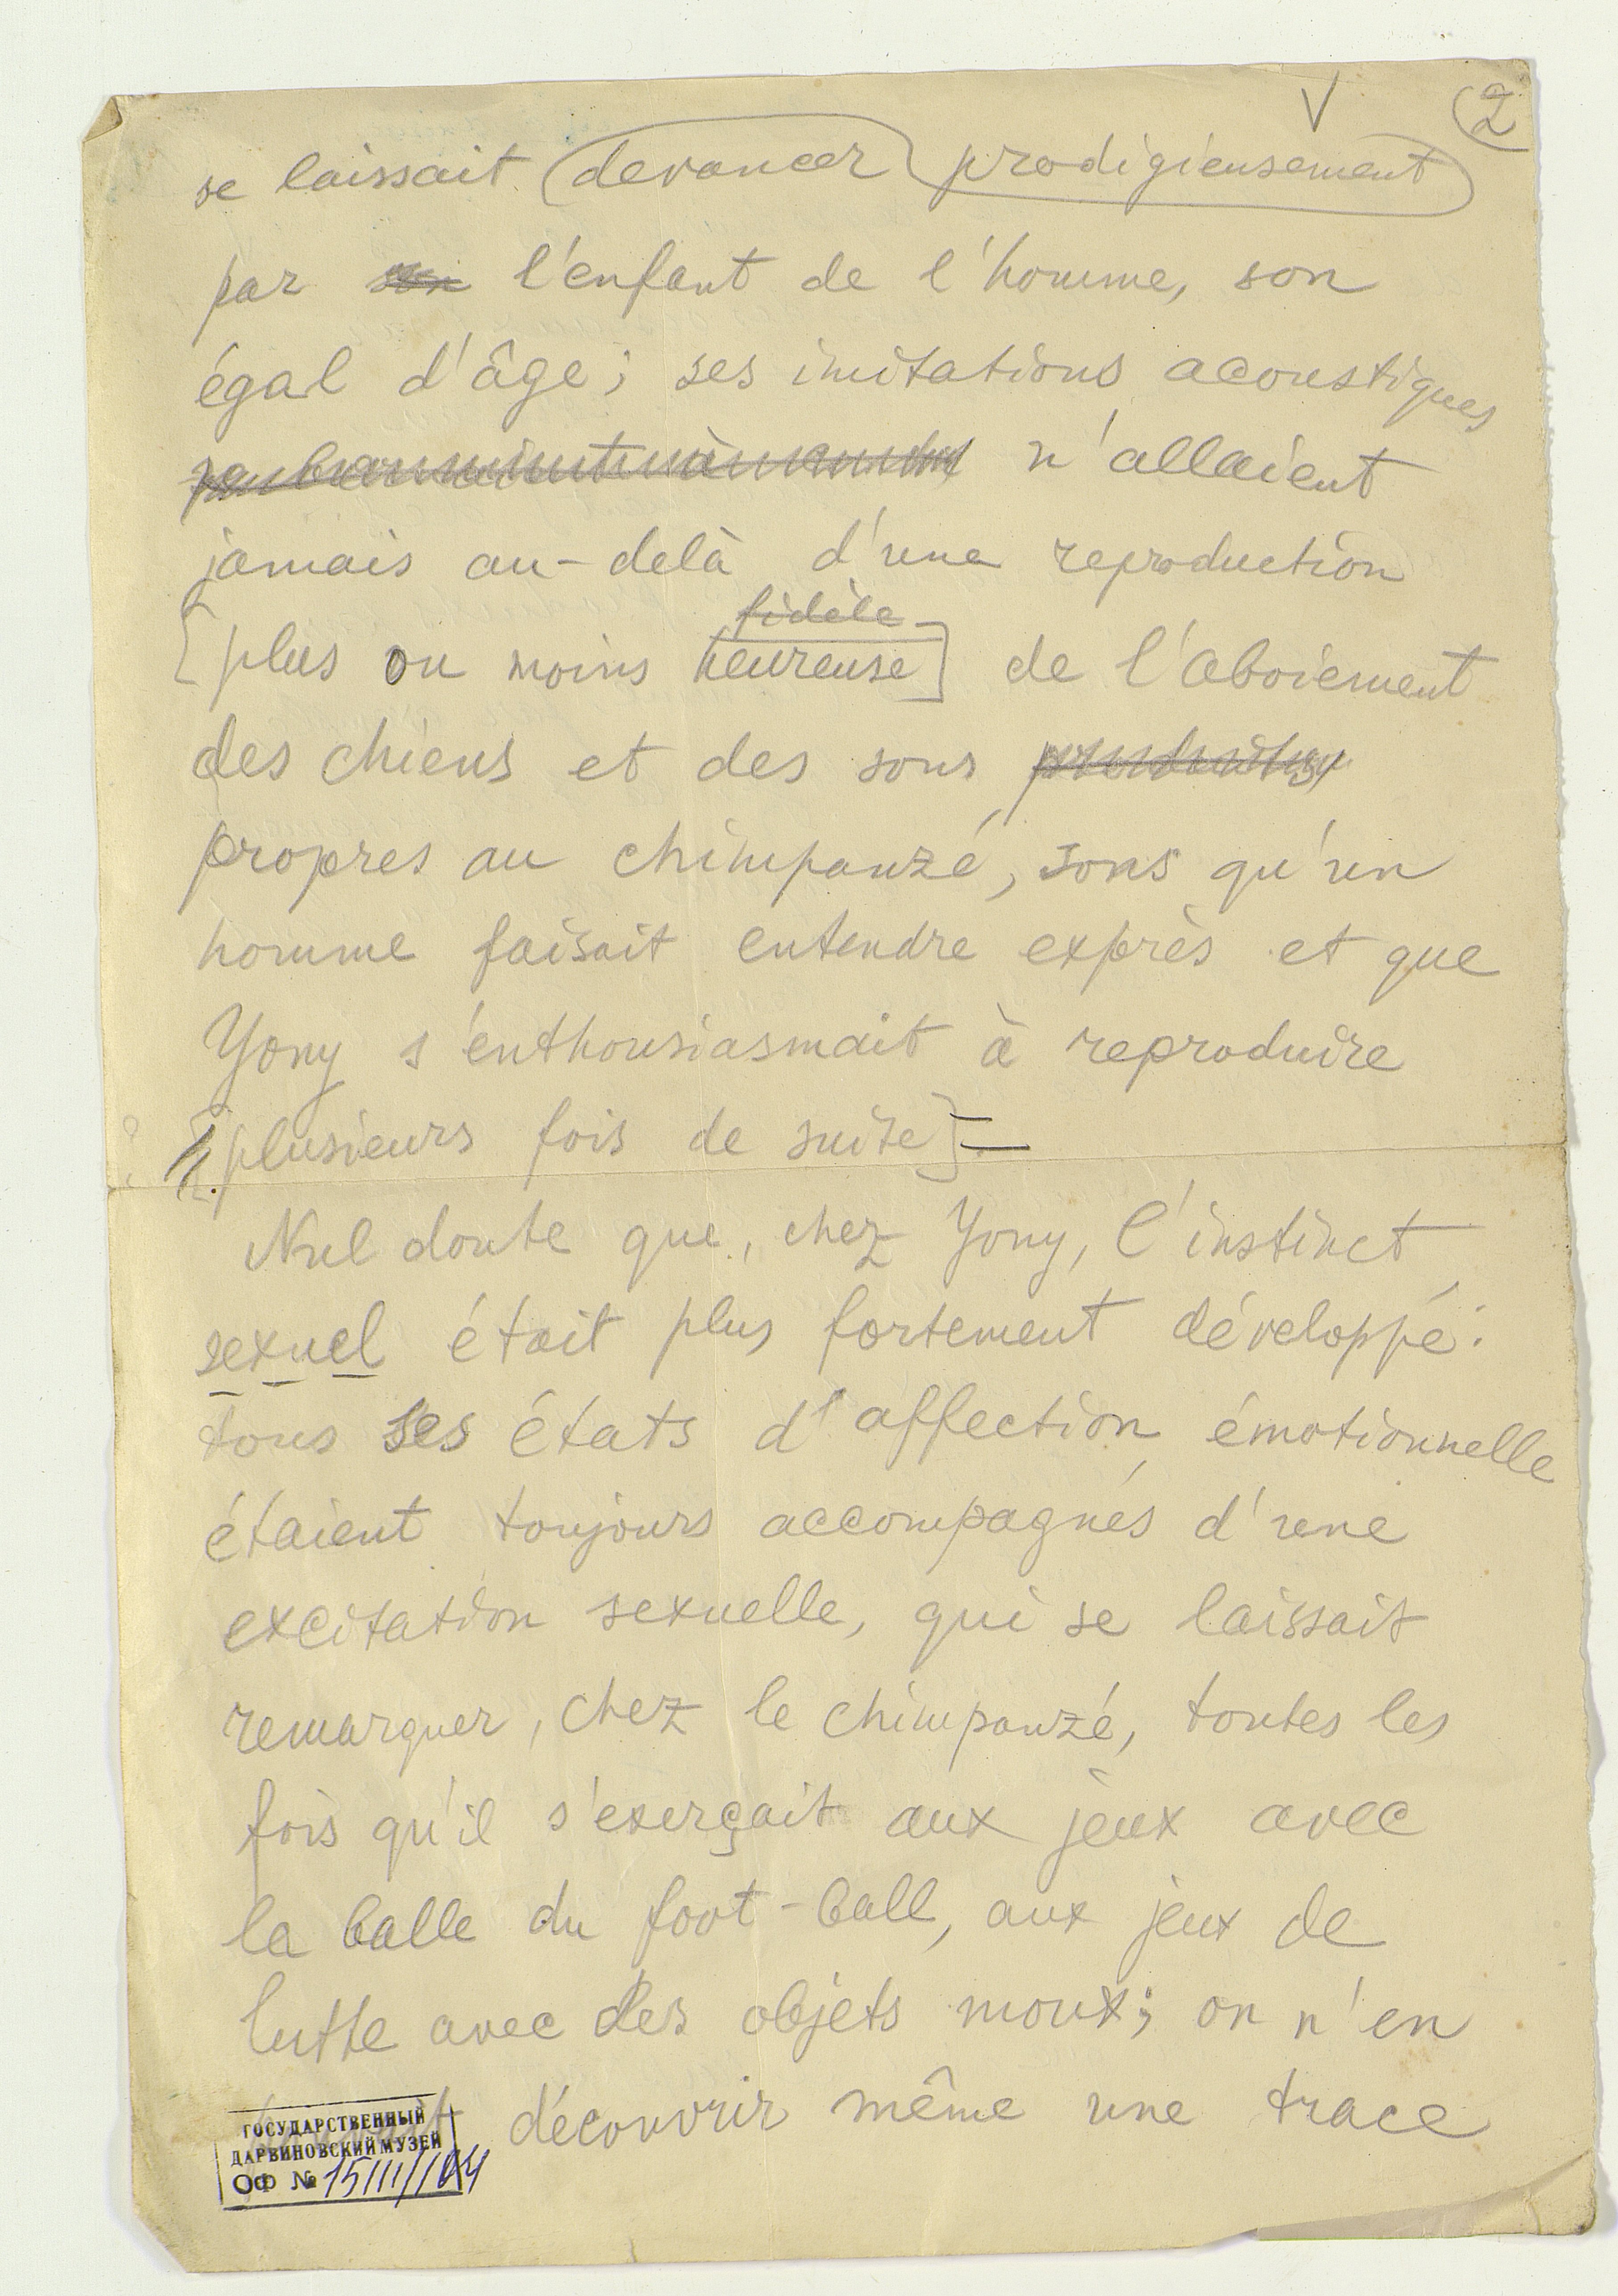 2
V
se laissait devancer prodigieusement
par l'enfant de l'homme, son
égal d'âge; ses imitations acoustiques
n'allaient
jamais au-delà d'une reproduction
fidèle
[plus ou moins heureuse] de l'aboiement
des chiens et des sons
propres au chimpanzé, sons qu'un
homme faisait entendre exprès et que
Yony s'enthousiasmait à reproduire
[plusieurs fois de suite]—
Nul doute que, chez Yony, l'instinct
sexuel était plus fortement développé:
tous ses états d'affection émotionnelle
étaient toujours accompagnés d'une
excitation sexuelle, qui se laissait
remarquer, chez le chimpanzé, toutes les
fois qu'il s'exerçait aux jeux avec
la balle du foot-ball, aux jeux de
lutte avec des objets moux; on n'en
découvrir même une trace
ГОСУДАРСТВЕННЫЙ
ДАРВИНОВСКИЙ МУЗЕЙ
ОФ № 15111/104